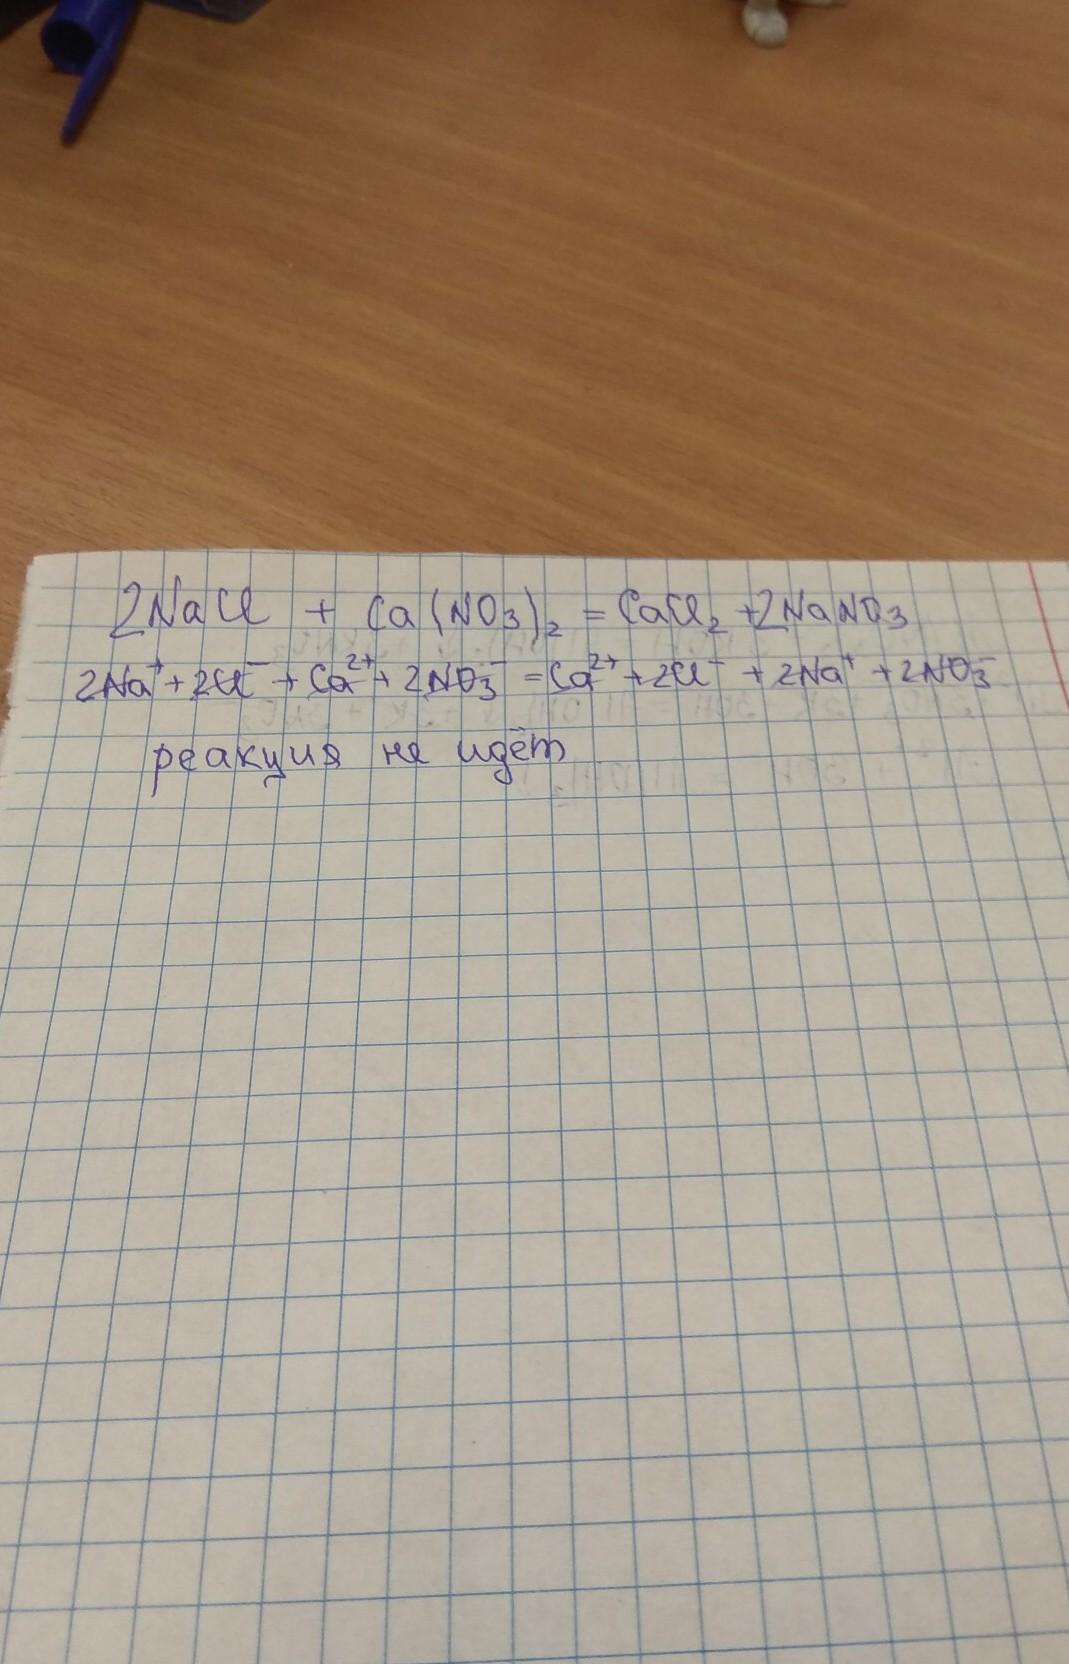 2NaCl + Ca(NO₃)₂ = CaCl₂ + 2NaNO₃
2Na⁺ + 2Cl⁻ + Ca²⁺ + 2NO₃⁻ = Ca²⁺ + 2Cl⁻ + 2Na⁺ + 2NO₃⁻
реакция не идёт